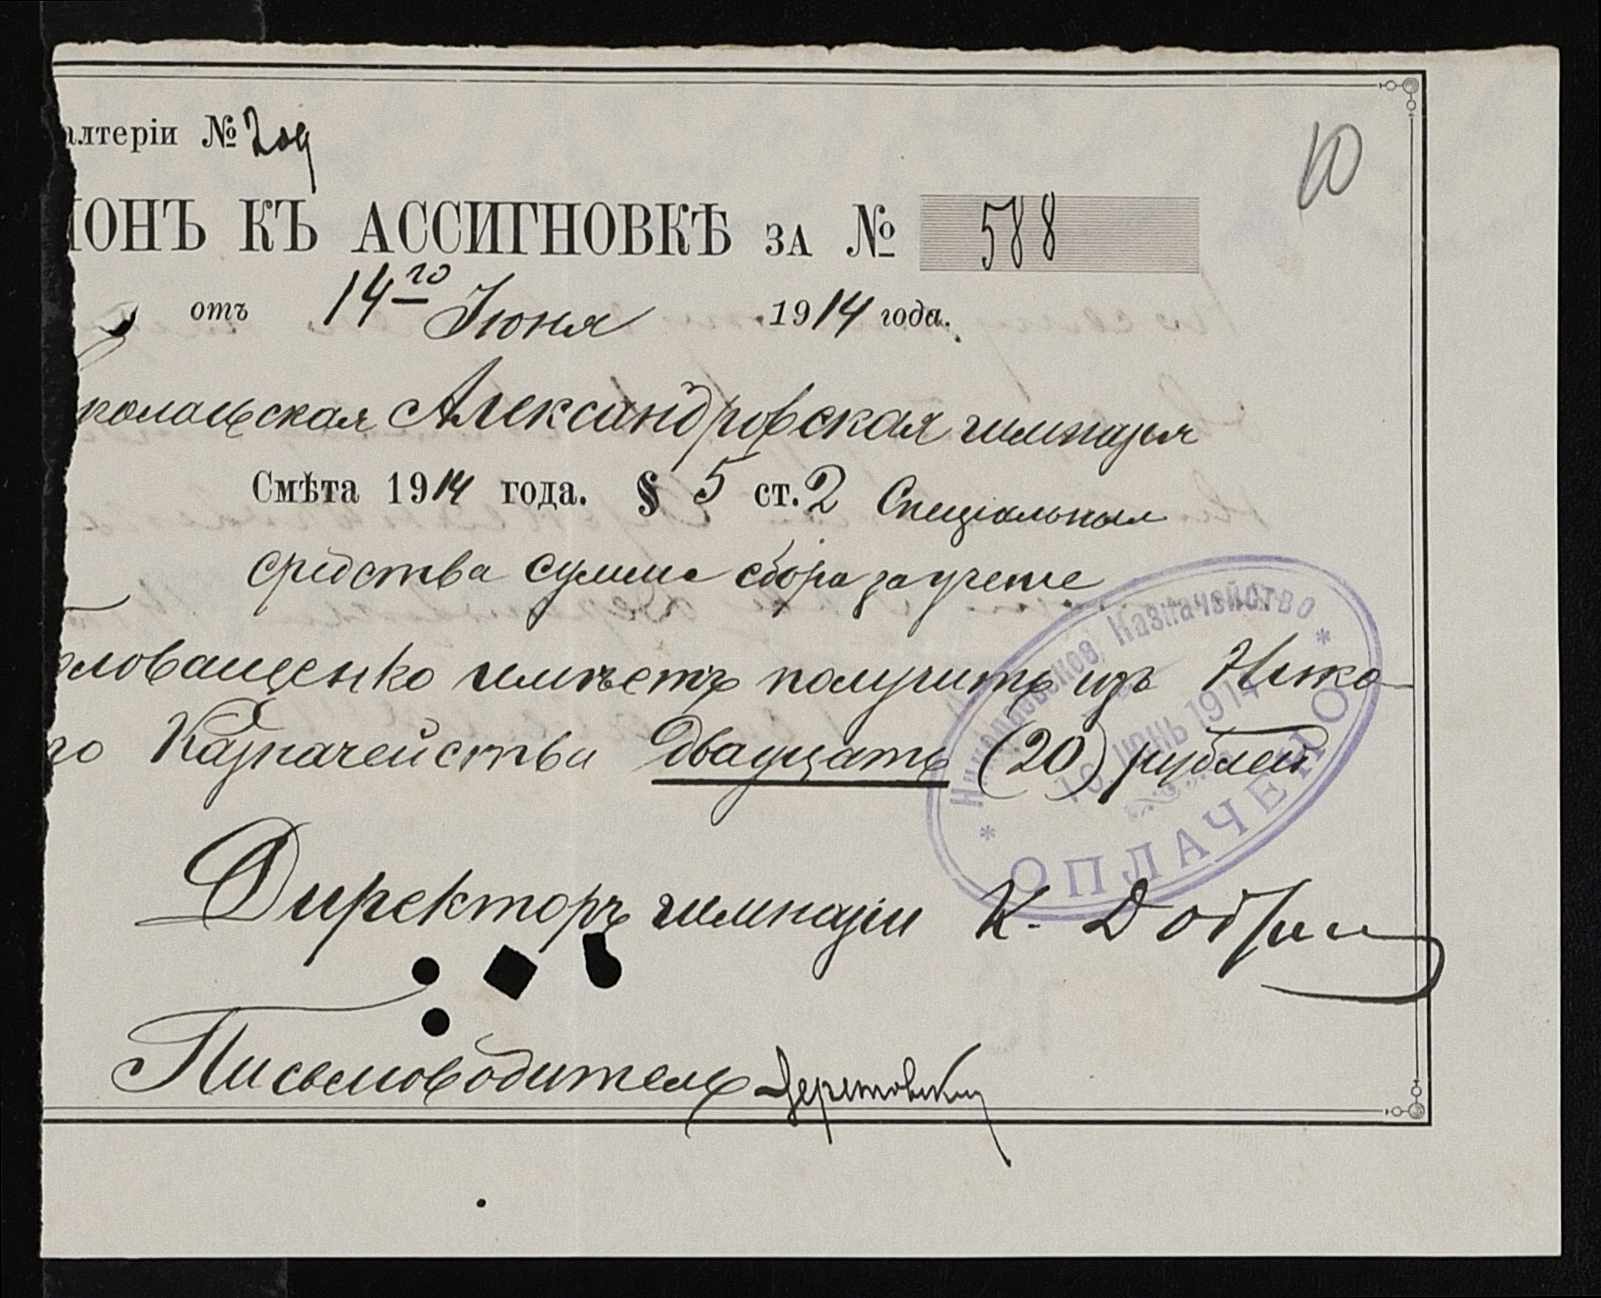 алтеріи № 209
10
ОНЪ КЪ АССИГНОВКѢ ЗА № 588
отъ 14го Іюня 1914 года.
колаевская Александровская гимназія
Смѣта 1914 года. § 5 ст. 2 Спеціальныя
средства сумма сбора за ученіе
ловащенко имѣетъ получить изъ Нико-
го Казначейства двадцать (20) рублей
Николаевское Казначейство
ІЮНЬ 1914
ОПЛАЧЕНО
Директоръ гимназіи К. Добр
Письмоводитель